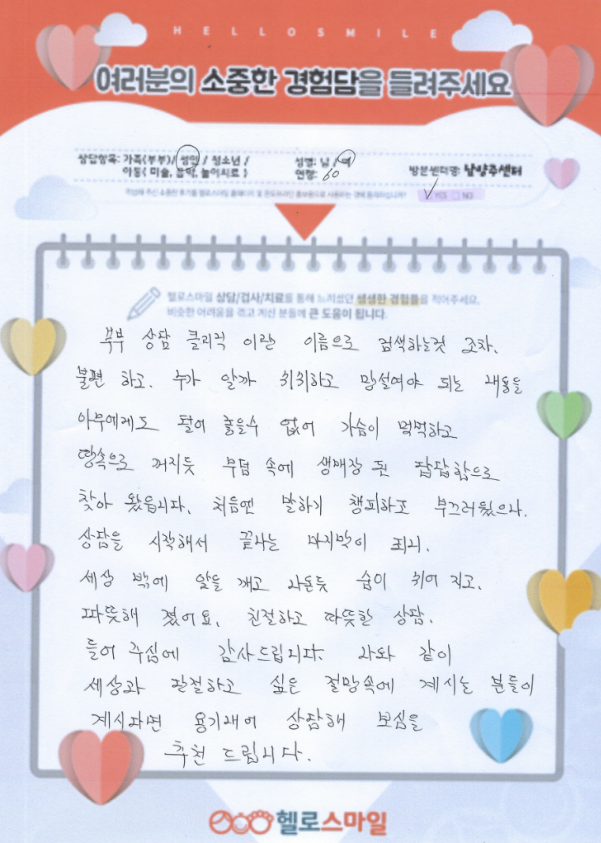 HELLOSMILE
여러분의 소중한 경험담을 들려주세요
상담항목: 가족(부부) / 성인 / 청소년 /
아동( 미술, 음악, 놀이치료 )
성별: 남 / 여
연령: 60
방문센터명: 남양주센터
YES NO
헬로스마일 상담/검사/치료를 통해 느끼셨던 생생한 경험들을 적어주세요.
비슷한 어려움을 겪고 계신 분들께 큰 도움이 됩니다.
부부 상담 클리닉 이란 이름으로 검색하는것 조차.
불편 하고. 누가 알까 쉬쉬하고 망설여야 되는 내용을
아무에게도 털어 놓을수 없어 가슴이 먹먹하고
땅속으로 꺼지듯 무덤 속에 생매장 된 답답함으로
찾아 왔읍니다. 처음엔 말하기 챙피하고 부끄러웠으나.
상담을 시작해서 끝나는 마지막이 되니.
세상 밖에 알을 깨고 나온듯 숨이 쉬어 지고.
따뜻해 졌어요. 친절하고 따뜻한 상담.
들어 주심에 감사드립니다. 나와 같이
세상과 단절하고 싶은 절망속에 계시는 분들이
계시다면 용기내어 상담해 보심을
추천 드립니다.
헬로스마일